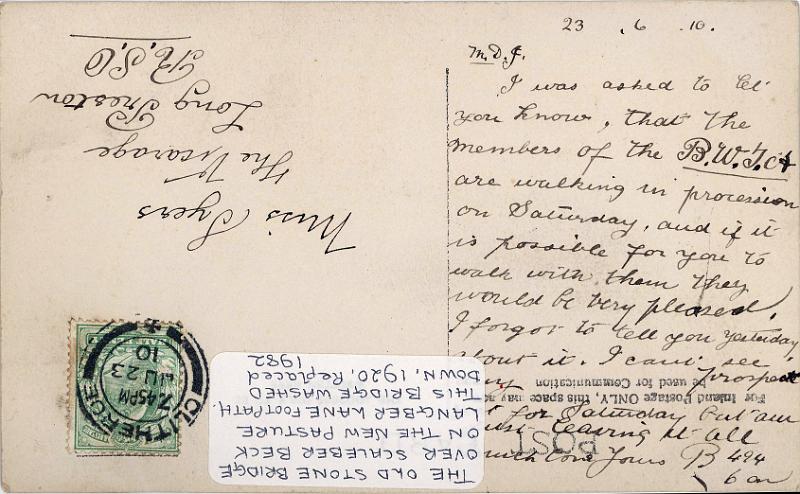 23 . 6 . 10.
M.D.J.
I was asked to let
you know, that the
members of the B.W.T.A
are walking in procession
on Saturday, and if it
is possible for you to
walk with them they
would be very pleased.
I forgot to tell you yesterday
about it. I cant see
any prospect
for Saturday but am
just leaving it all
much love yours B 494
6 am
Miss Syers
The Vicarage
Long Preston
R.S.O
CLITHEROE
7.45PM
JU 23
10
For Inland Postage ONLY, this space may
be used for Communication
POST
THE OLD STONE BRIDGE
OVER SCALEBER BECK
ON THE NEW PASTURE
LANGBER LANE FOOTPATH.
THIS BRIDGE WASHED
DOWN, 1920. Replaced
1982